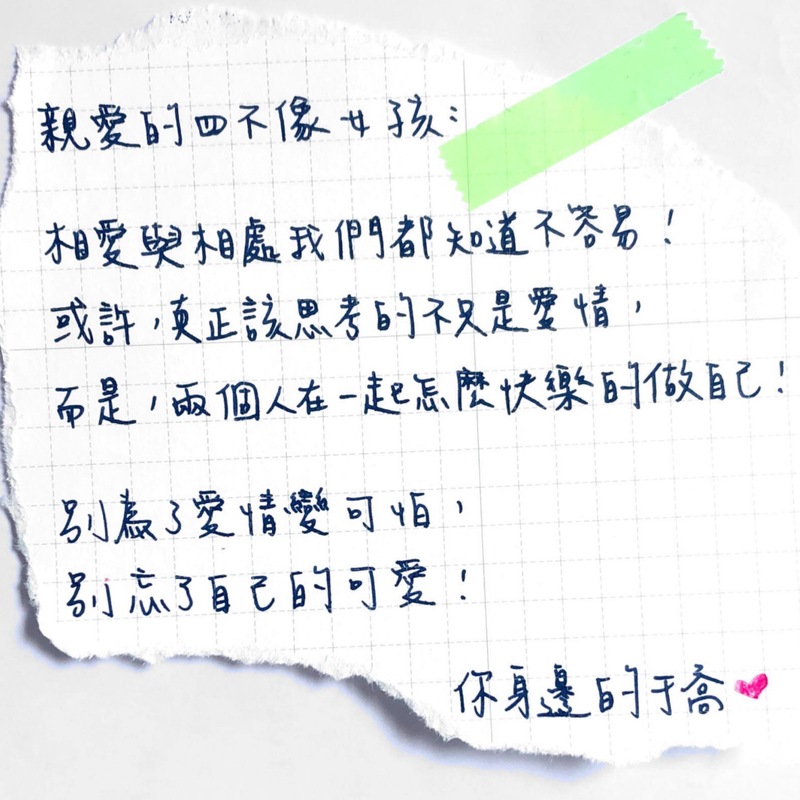 親愛的四不像女孩：
相愛與相處我們都知道不容易！
或許，真正該思考的不只是愛情，
而是，兩個人在一起怎麼快樂的做自己！
別為了愛情變可怕，
別忘了自己的可愛！
你身邊的于喬